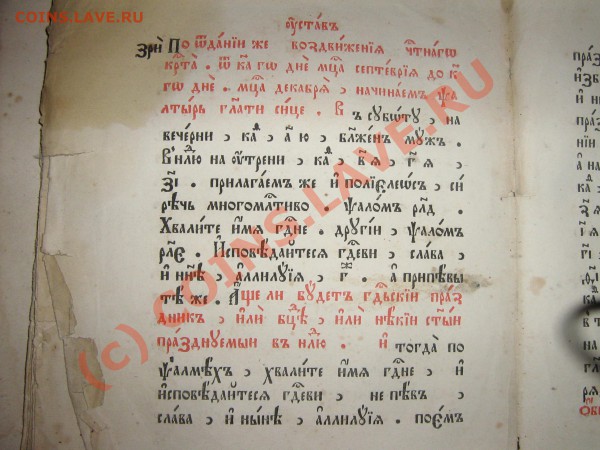 COINS.LAVE.RU
COINS.LAVE.RU
оуставъ
зри По ѿданїи же воздвиженїѧ чтнагѡ
крта . ѿ ка гѡ дне мца септеврїѧ до к
гѡ дне . мца декабрѧ , начинаемъ ѱа
лтырь глати сице . Въ субѡту , на
вечерни , ка , а ю , блженъ мужъ .
В нлю на оутрени , ка , в ѧ , г ѧ ,
зі . прилагаемъ же и полїелеѡсъ , си
рѣчь многомлтиво . ѱаломъ рлд .
Хвалите имѧ гдне . другїи , ѱаломъ
рле . Исповѣдаитесѧ гдеви , слава ,
и ннѣ , аллилуїѧ , г . а припѣвы
тѣ же . Аще ли будетъ гдьскїи пра
здникъ , или бцѣ , или нѣкїи стыи
празднуемыи въ нлю . и тогда по
ѱалмѣхъ , хвалите имѧ гдне , и
исповѣдаитесѧ гдеви , не пѣвъ ,
слава , и нынѣ , аллилуїѧ . поемъ
(c) COINS.LAVE.RU